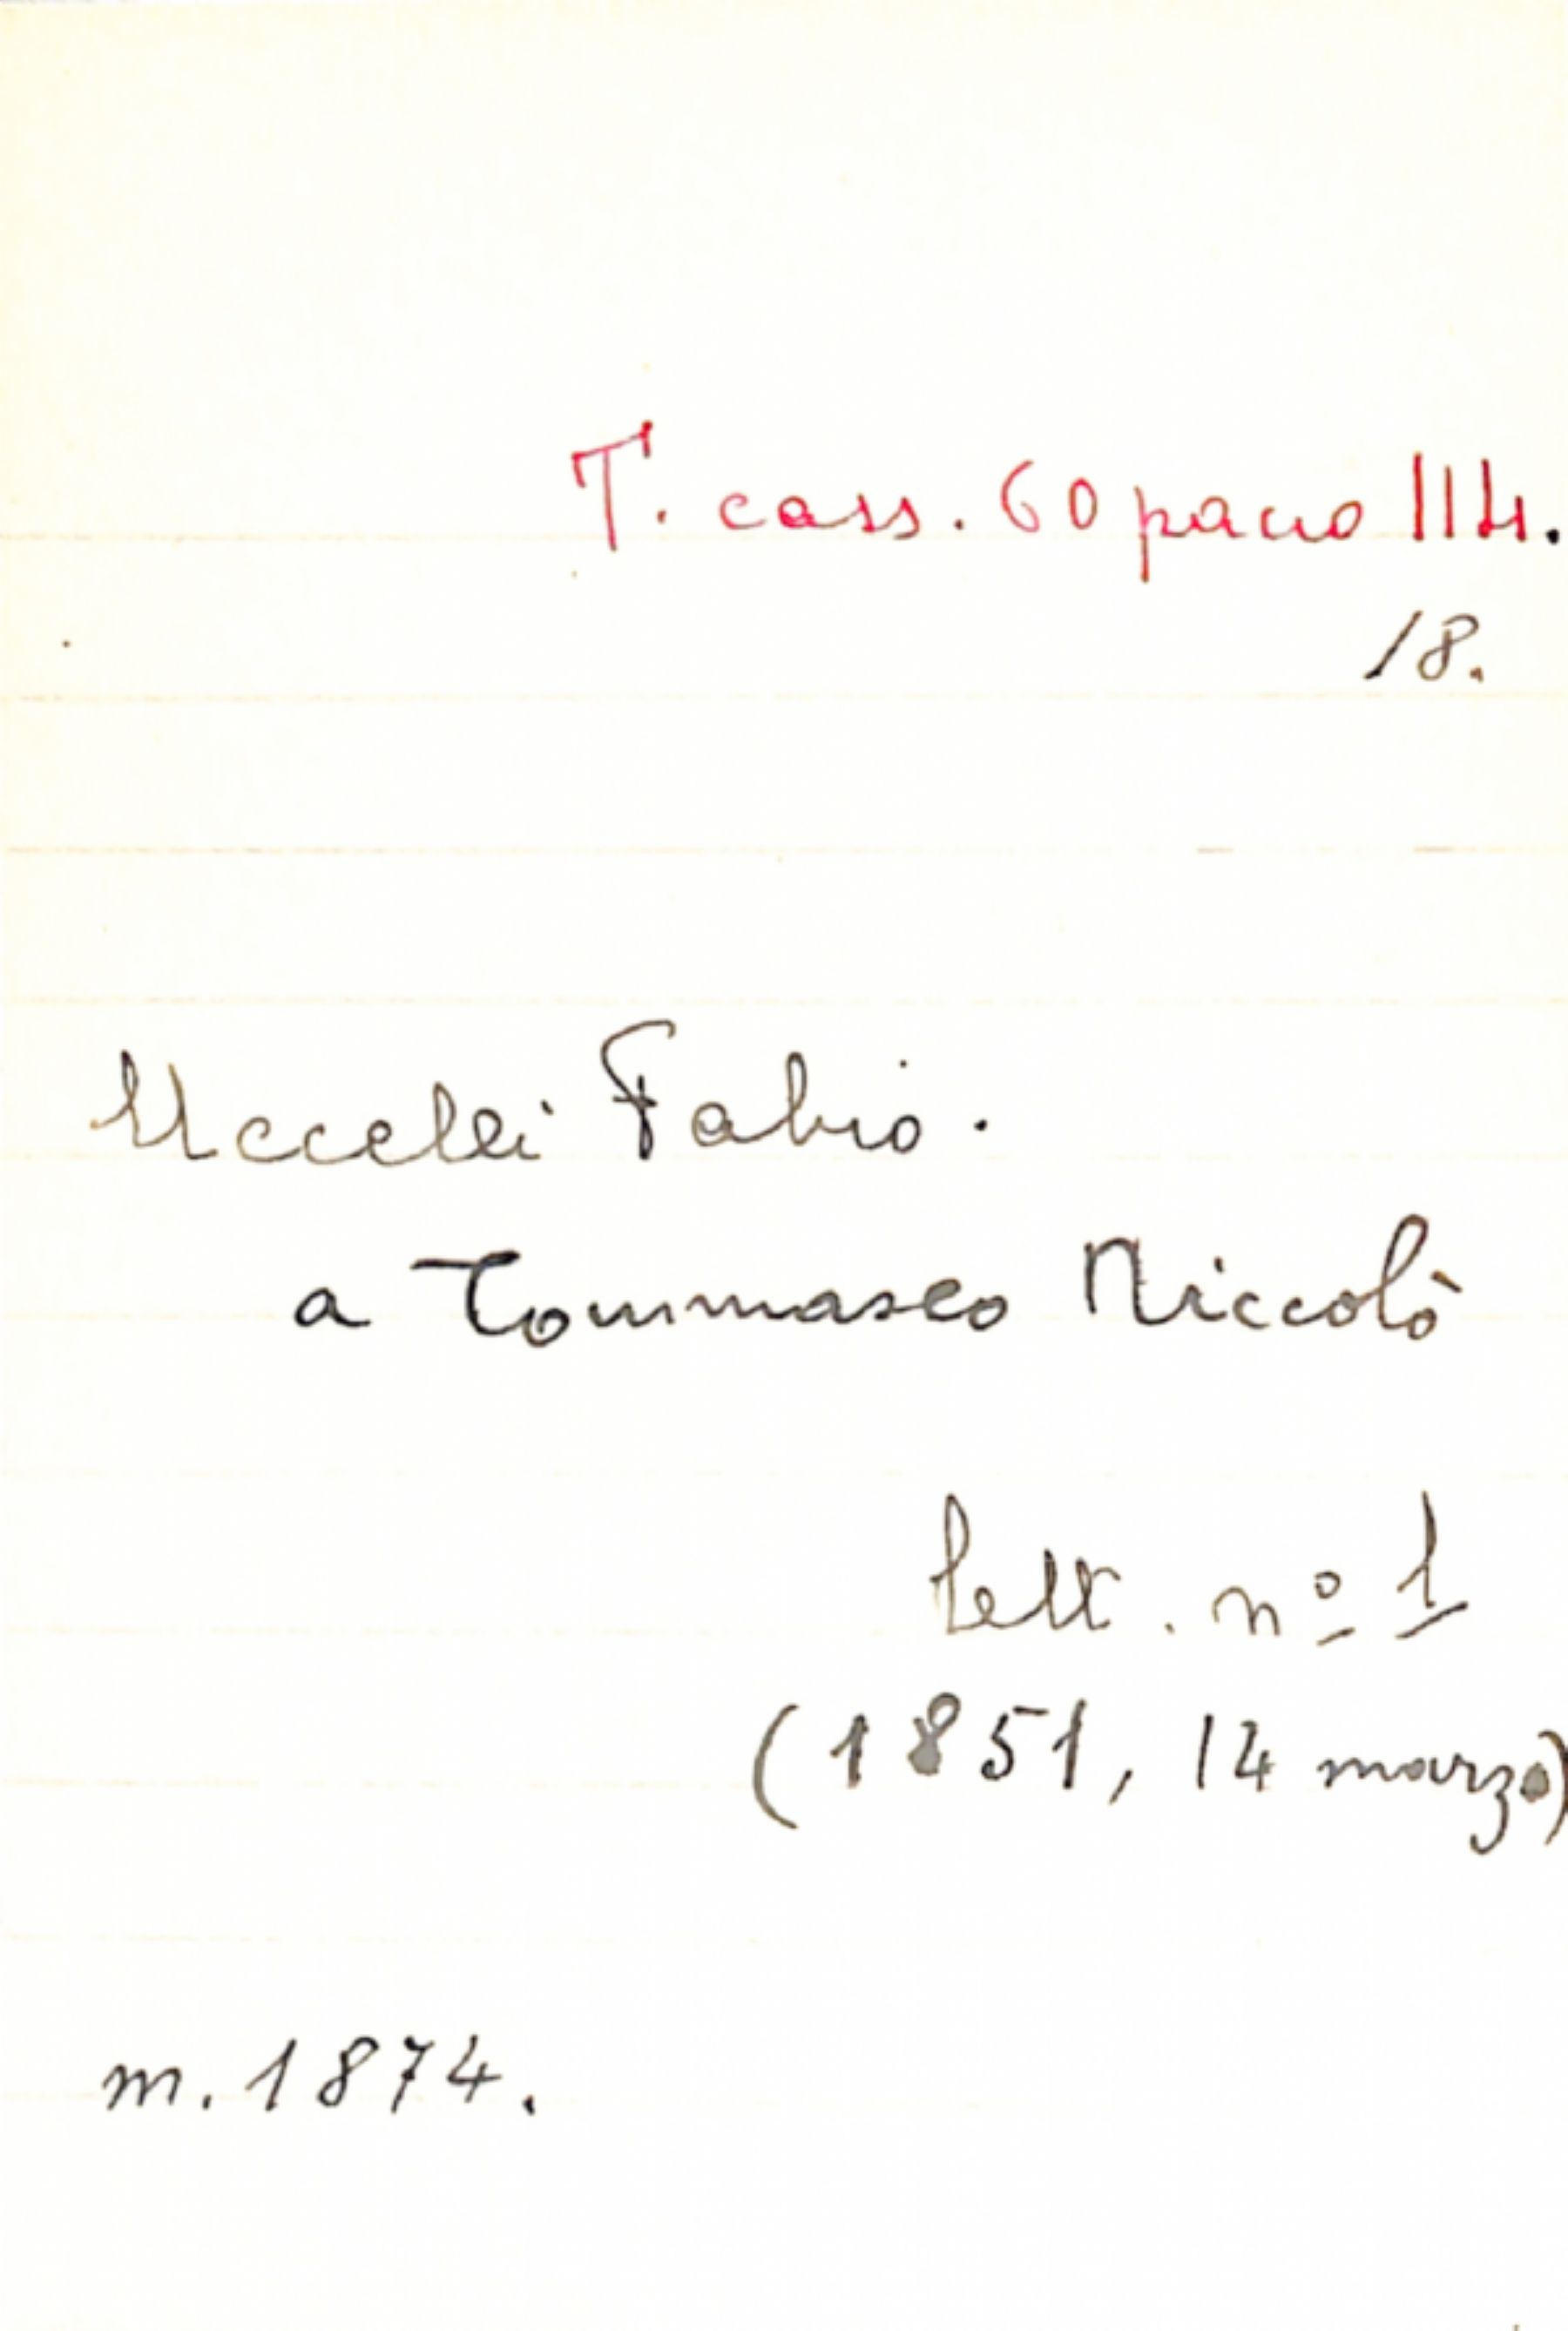 T. cass. 60 pacco 114.
18.
Uccelli Fabio.
a Tommaseo Niccolò
lett. nº 1
(1851, 14 marzo)
m. 1874.